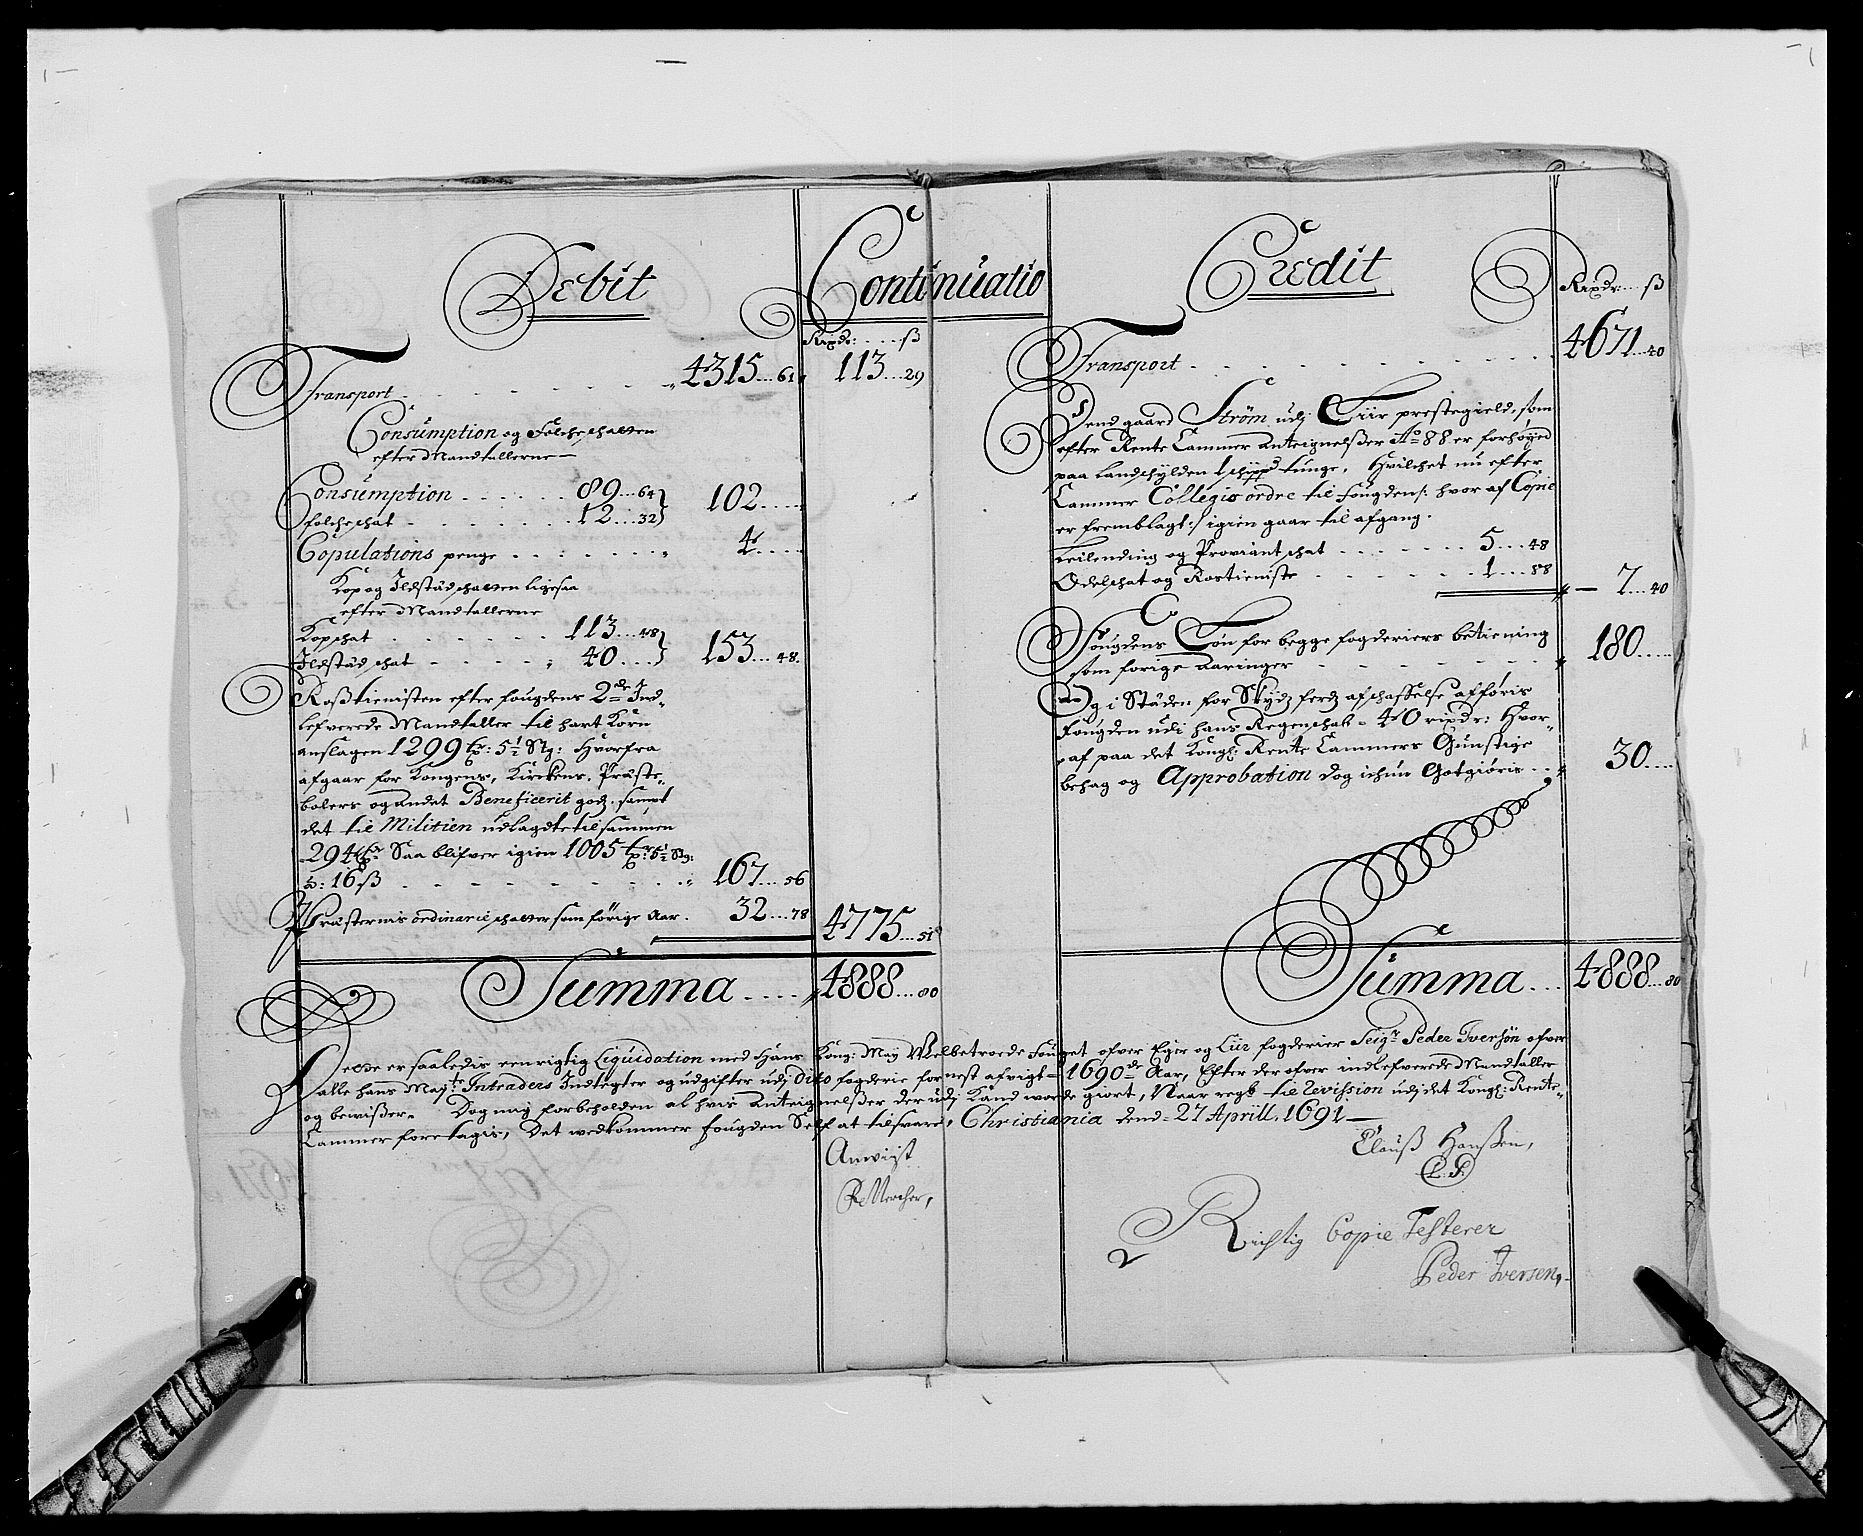 Debit
Continuatio
Rixdr: .... ß
Transport . . . . . . . 4315...61 113...29
Consumption og Folcheschatten
efter Mandtallerne
Consumption . . . . . 89...64
102.....
folcheschat . . . . . . . 12...32
Copulations penge . . . : . . . . 4.....
Kop og Ildstädschatten ligesaa
efter Mandtallerne
Kopschat . . . . . . 113...48
153...48.
Ildstädschat . . . . . 40....
Roßtienisten efter fougdens 2de Ind-
lefverede Mandtaller til hart Korn
anslagen 1299 tr: 5½ Stg: Hvorfra
afgaar for Kongens, Kirckens, Præste-
bolers og andet Beneficerit godz. sampt
det til Militien udlagdte tilsammen
294 tr Saa blifver igien 1005 tr: 5½ Stg:
à: 16 ß . . . . . . . . . . 167...56
Præsternis ordinarie schatter som förige Aar. 32...78
4775...51
Summa .... 4888...80
Credit
Rixdr: ... ß
Transport . . . . . . . . . . 4671...40
Dend gaard Ström udj Liir prestegield, som
efter Rente Cammer Anteignelßer Ao 88 er forhøyed
paa Landschylden 1 schippd tunge, Hvilchet nu efter
Cammer Collegis ordre til fougden /: hvor af Copie
er fremblagt :/ igien gaar til afgang.
Leilending og Proviant schat . . . . . . . 5...48
Odelschat og Rostieniste . . . . . . . 1...88
7...40
Fougdens Løn for begge fogderiers betiening
som forige Aaringer . . . . . . . . 180.....
Og i Städen for Skydzferdz afschaffelse afføris
fougden udi hans Regenschab - 40 rixdr: Hvor-
af paa det Kongl: Rente Cammers Gunstige
behag og Approbation dog ichun Gotgiøris . . . 30....
Summa ... 4888...80
Dette er saaledis een rigtig Liquidation med Hans Kong: May Welbetroede Fouget ofver Eger og Liir fogderier Seigr Peder Iversøn ofver
alle hans Mayts Intraders Indtegter og udgifter udj dito fogderie for nest afvigt - 1690de Aar, Efter der ofver indlefverede Mandtaller
og bewißer. Dog mig forbeholden al hvis Anteignelßer der udj Kand worde giort, Naar regk til Revission udj det Kongl: Rente-
Cammer foretagis, Det wedkommer fougden Self at tilsvare, Christiania dend - 27 Aprill. 1691
Anwiist
Clauß Hanßen,
L. S.
Richtig Copie Testerer
Peder Iversen,